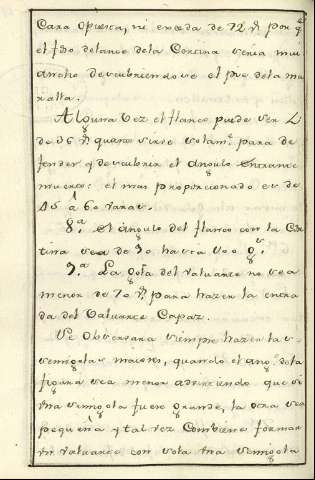 Cara opuesta, ni exceda de 72 v.s por q.e
el f.do delante dela Cortina venia mui
ancho descubriendose el pie dela mu
ralla.
Alguna vez el flanco puede ser
de 36 v.s quando sirve solam.te para de
fender y descubrir el angulo entrante
muerto: el mas proporcionado es de
45 à 60 varas.
8.a el angulo del flanco con la Cor
tina sea de 90 hasta 100 g.s
9.a La gola del valuarte no sea
menor de 70 v.s para hazer la entra
da del Valuarte Capaz.
Se observara siempre hazer la s
semigolas maiores, quando el ang.o dela
figura sea menor advirtiendo que si
una semigola fuese grande, la otra sea
pequeña y tal vez Combiene formar
un valuarte con sola una semigola